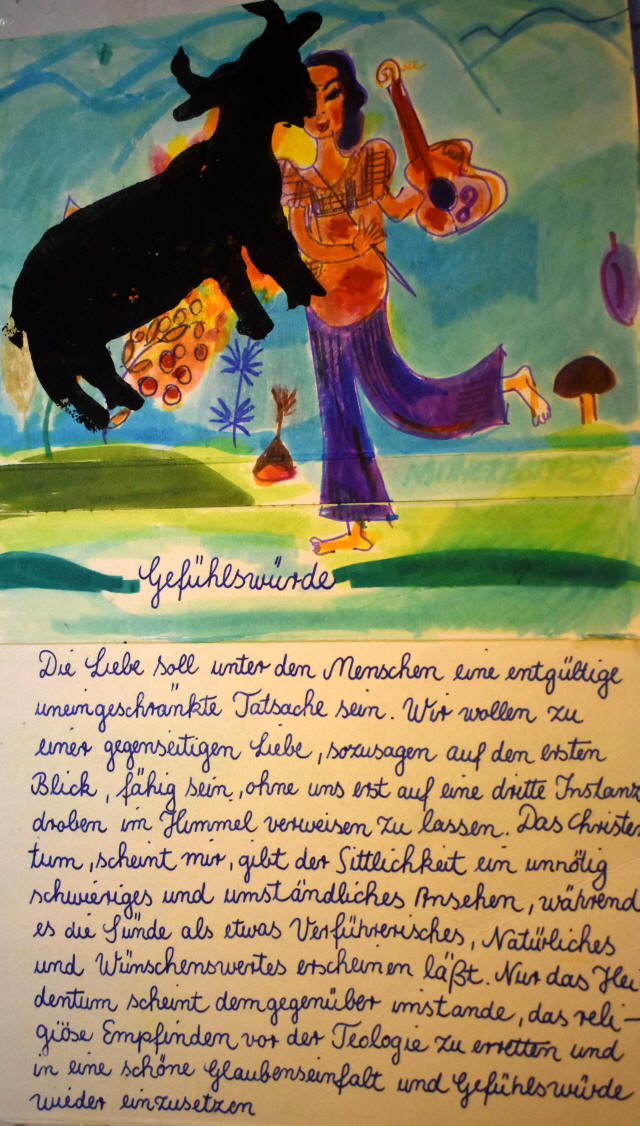 Gefühlswürde
Die Liebe soll unter den Menschen eine entgültige
uneingeschränkte Tatsache sein. Wir wollen zu
einer gegenseitigen Liebe, sozusagen auf den ersten
Blick, fähig sein, ohne uns erst auf eine dritte Instanz
droben im Himmel verweisen zu lassen. Das Christen
tum, scheint mir, gibt der Sittlichkeit ein unnötig
schwieriges und umständliches Ansehen, während
es die Sünde als etwas Verführerisches, Natürliches
und Wünschenswertes erscheinen läßt. Nur das Hei
dentum scheint demgegenüber imstande, das reli-
giöse Empfinden vor der Teologie zu erretten und
in eine schöne Glaubenseinfalt und Gefühlswürde
wieder einzusetzen